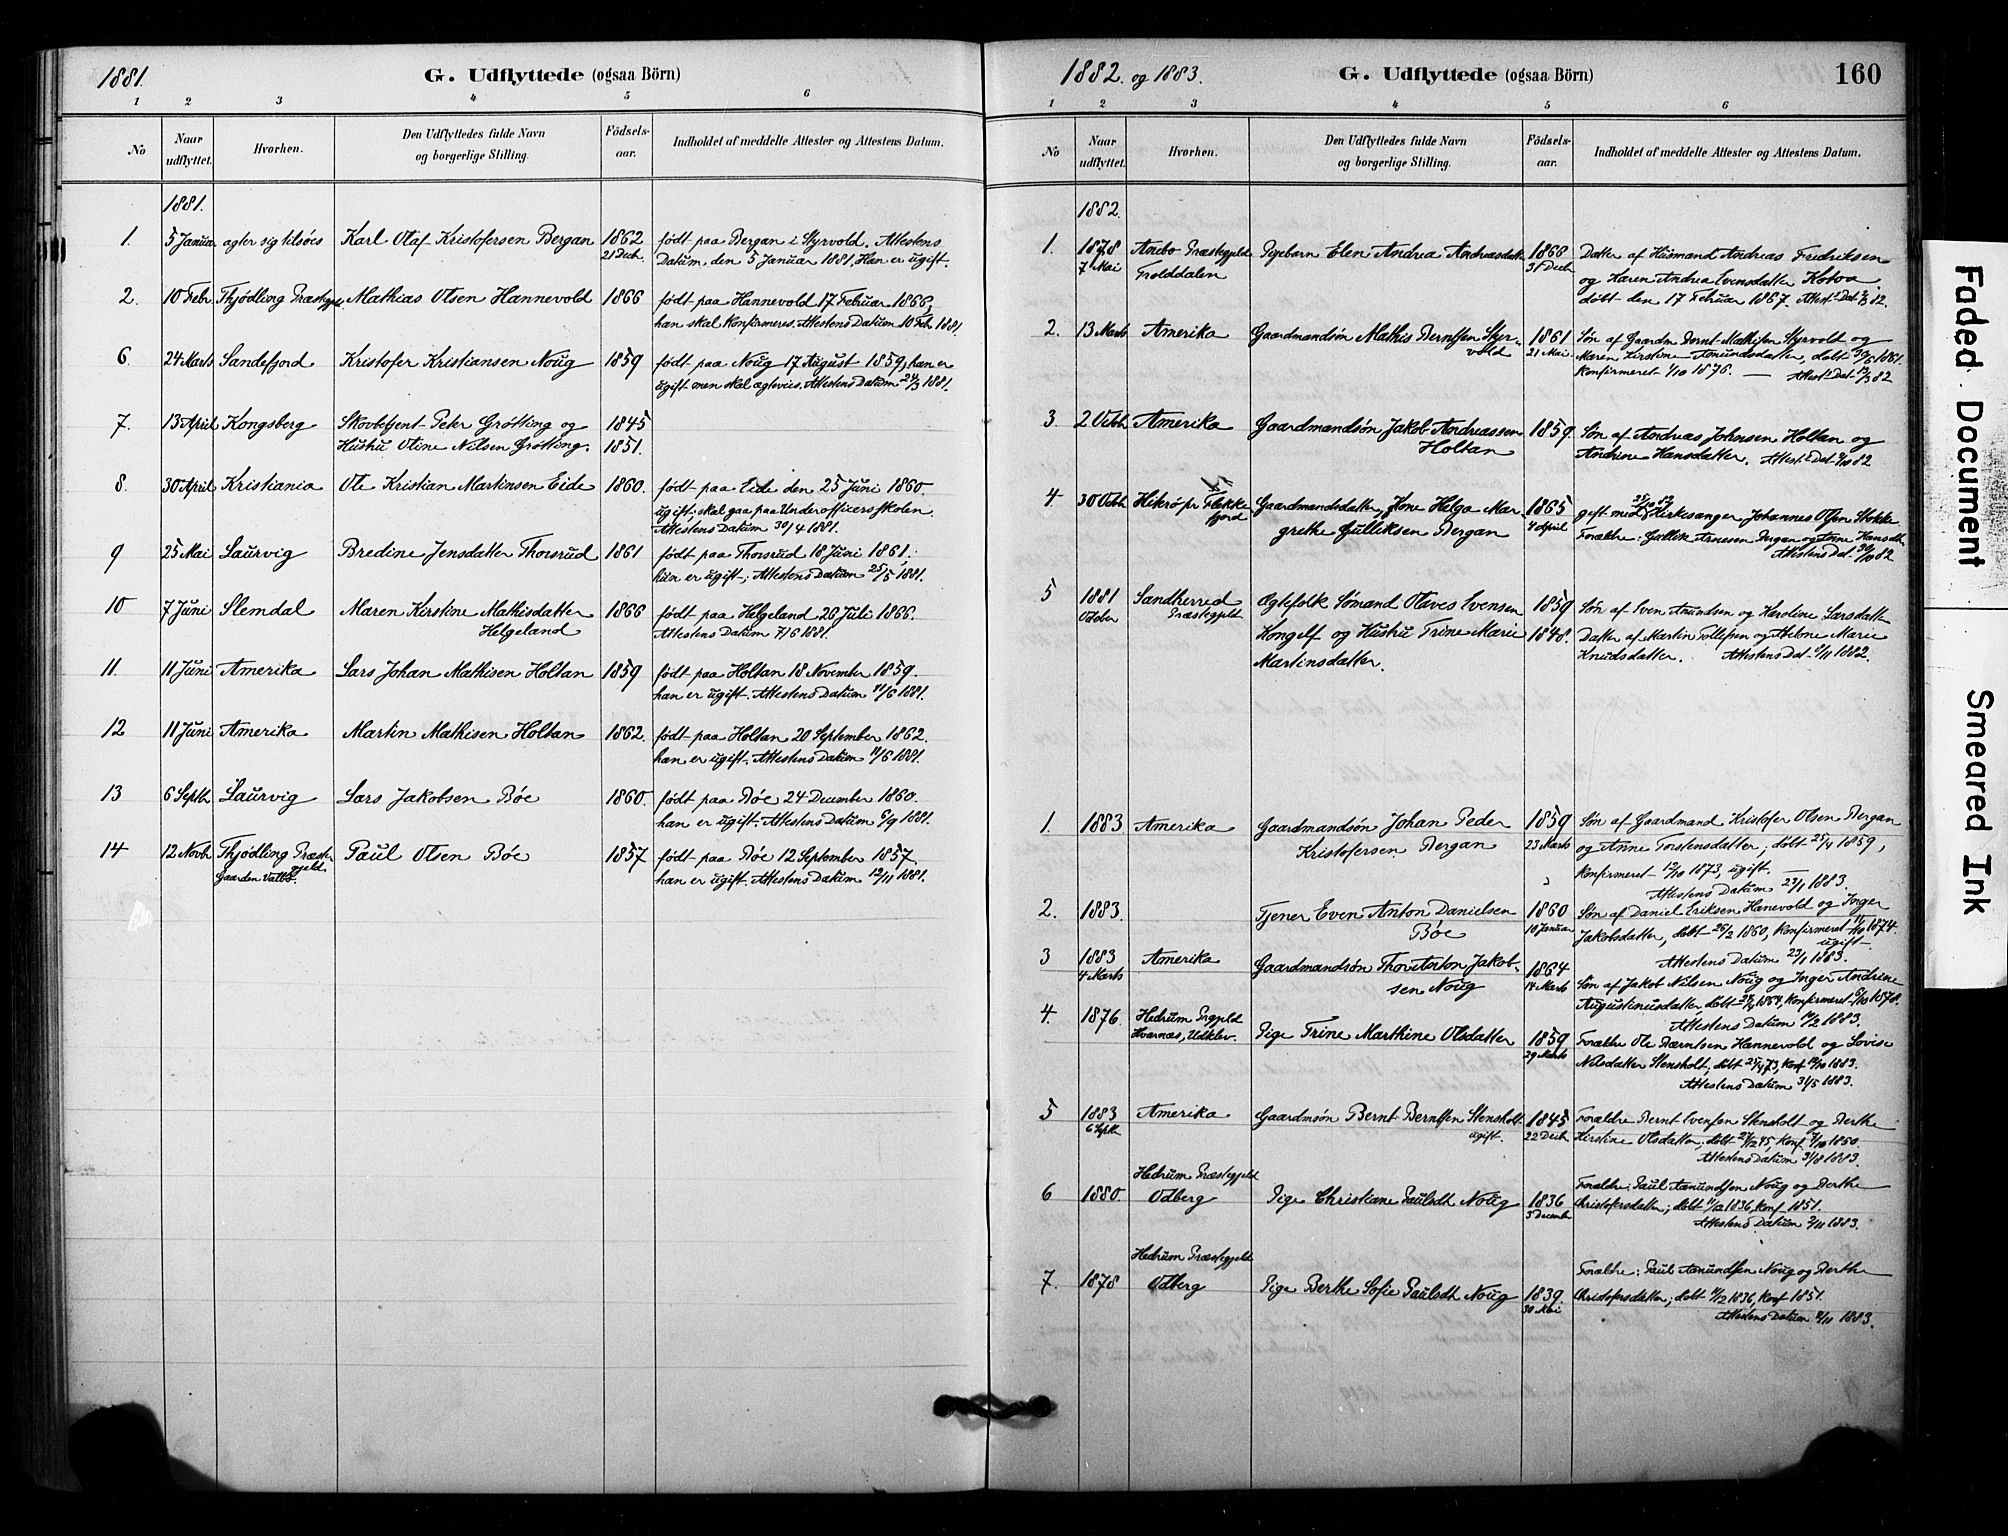 1881.
G. Udflyttede (ogsaa Börn)
1 2 3 4 5 6
No
Naar udflyttet.
Hvorhen.
Den Udflyttedes fulde Navn og borgerlige Stilling.
Födsels-aar.
Indholdet af meddelte Attester og Attestens Datum.
1881.
1. 5 Januar agter sig tilsøes Karl Olaf Kristofersen Bergan 1862 født paa Bergan i Styrvold. Attestens
21 Decb. Datum den 5 Januar 1881, Han er ugift.
2. 10 Febr Thjødling Præstegjeld Mathias Olsen Hannevold 1866 født paa Hannevold 17 Februar 1866,
han skal konfirmeres. Attestens Datum 10 Feb 1881.
6. 24 Marts Sandefjord Kristofer Kristiansen Noug 1859 født paa Noug 17 August 1859, han er
ugift men skal ægtevies. Attestens Datum 24/3 1881.
7. 13 April Kongsberg Skovbetjent Peter Grøtting og 1845
Hustru Otine Nilsen Grøtting. 1851.
8. 30 April Kristiania Ole Kristian Martinsen Eide 1860. født paa Eide den 25 Juni 1860.
ugift, skal gaa paa Underofficersskolen.
Attestens Datum 30/4 1881.
9 25 Mai Laurvig Bredine Jensdatter Thorsrud 1861 født paa Thorsrud 18 Juni 1861,
hun er ugift; Attestens Datum 25/5 1881.
10 7 Juni Slemdal Maren Kirstine Mathisdatter 1866 født paa Helgeland 26 Juli 1866.
Helgeland Attestens Datum 7/6 1881.
11. 11 Juni Amerika Lars Johan Mathisen Holtan 1859 født paa Holtan 18 November 1859.
han er ugift. Attestens Datum 11/6 1881.
12 11 Juni Amerika Martin Mathisen Holtan 1862. født paa Holtan 20 September 1862.
han er ugift. Attestens Datum 11/6 1881.
13 6 Septb. Laurvig Lars Jakobsen Bøe 1860. født paa Bøe 24 December 1860.
han er ugift. Attestens Datum 6/9 1881.
14 12 Novb. Thjødling Præste- Paul Olsen Bøe 1857 født paa Bøe 12 September 1857.
gjeld
Gaarden Valbø. han er ugift. Attestens Datum 12/11 1881.
1882. og 1883.
G. Udflyttede (ogsaa Börn)
160
1 2 3 4 5 6
No
Naar udflyttet.
Hvorhen.
Den Udflyttedes fulde Navn og borgerlige Stilling.
Födsels-aar.
Indholdet af meddelte Attester og Attestens Datum.
1882.
1. 1878 Anebo Præstegjeld Pigebarn Elen Andrea Andreasdatt 1866 Datter af Husmand Andreas Fredriksen
7 Mai Trolddalen 31 Decb og Karen Andrea Evensdatter
døbt den 17 Februar 1867. Attest. Dat 82.
2. 13 Marts Amerika Gaardmandsøn Mathis Berntsen Styr- 1861 Søn af Gaardm Bernt Mathisen Styrvold og
vold 21 Mai. Maren Kirstine Amundsdatter, døbt 30/6 1861.
Konfirmeret 1/10 1876. — Attest. Dat 13/3 82
3 2 Octob Amerika Gaardmandsøn Jakob Andreassen 1859. Søn af Andreas Johnsen Holtan og
Holtan Andrine Hansdatter. Attest. Dat 2/10 82
4. 30 Octb Hikrø pr Flekke Gaardmandsdatter Hone Helga Mar- 1865 gift med Kirkesanger Johannes Olsen Stokke
fjord grethe Gulliksen Bergan 4 April Forældre: Gullik Arnesen Bergan og Anne Hansdtr.
Attestens Dat. 30/10 82
5 1881 Sandherred Ægtefolk Sømand Olaves Evensen 1859 Søn af Even Amundsen og Karoline Larsdatter
October Præstegjeld Kongelf og Hustru Trine Marie 1848. Datter af Martin Tollefsen og Abelone Marie
Martinsdatter. Knudsdatter. Attestens Dat. /11 1882.
1. 1883 Amerika Gaardmandsøn Johan Peder 1859 Søn af Gaardmand Kristofer Olsen Bergan
Kristofersen Bergan 23 Marts og Anne Torstensdatter; døbt 25/4 1859,
Konfirmeret 12/10 1873, ugift. —
Attestens Datum 23/1 1883.
2. 1883. Tjener Even Anton Danielsen 1860 Søn af Daniel Eriksen Hanevold og Inger
Bøe 10 Januar Jakobsdatter, døbt 26/2 1860, Konfirmeret 11/10 1874.
ugift
Attestens Datum 23/1 1883.
3 1883 Amerika Gaardmandsøn Thor Anton Jakob- 1864 Søn af Jakob Nilsen Noug og Inger Andrine
4 Marts sen Noug 14 Marts Augustinusdatter, døbt 1864, Konfirmeret 6/10 1878.
Attestens Datum 14/2 1883.
4. 1876 Hedrum Prgjeld Pige Trine Marthine Olsdatter 1859 Forældre Ole Berntsen Hannevold og Lovise
Hvarnes, Udklev. 29 Marts Nilsdatter Stensholt, døbt Konf 1883.
Attestens Datum 31/5 1883.
5 1883 Amerika Gaardmsøn Bernt Berntsen Stensholt 1845 Forældre Bernt Evensen Stensholt og Berthe
6 Septb ugift. 22 Decb Kirstine Olsdatter, døbt 27/12 45, Konf 7/10 1860.
Attestens Datum 31/8 1883.
6 1880 Hedrum Præstegjeld Odberg Pige Christiane Paulsdt Noug 1836 Forældre: Paul Amundsen Noug og Berthe
3 December Christofersdatter; døbt 11/12 1836, Konf 1851.
Attestens Datum 2/11 1883.
7. 1878 Hedrum Præstegjeld Odberg Pige Berthe Sofie Paulsdt Noug 1839. Forældre: Paul Amundsen Noug og Berthe
30 Mai Christofersdatter; døbt 11/12 1836, Konf 1851.
Attestens Datum 2/11 1883.
Faded Document
Smeared Ink